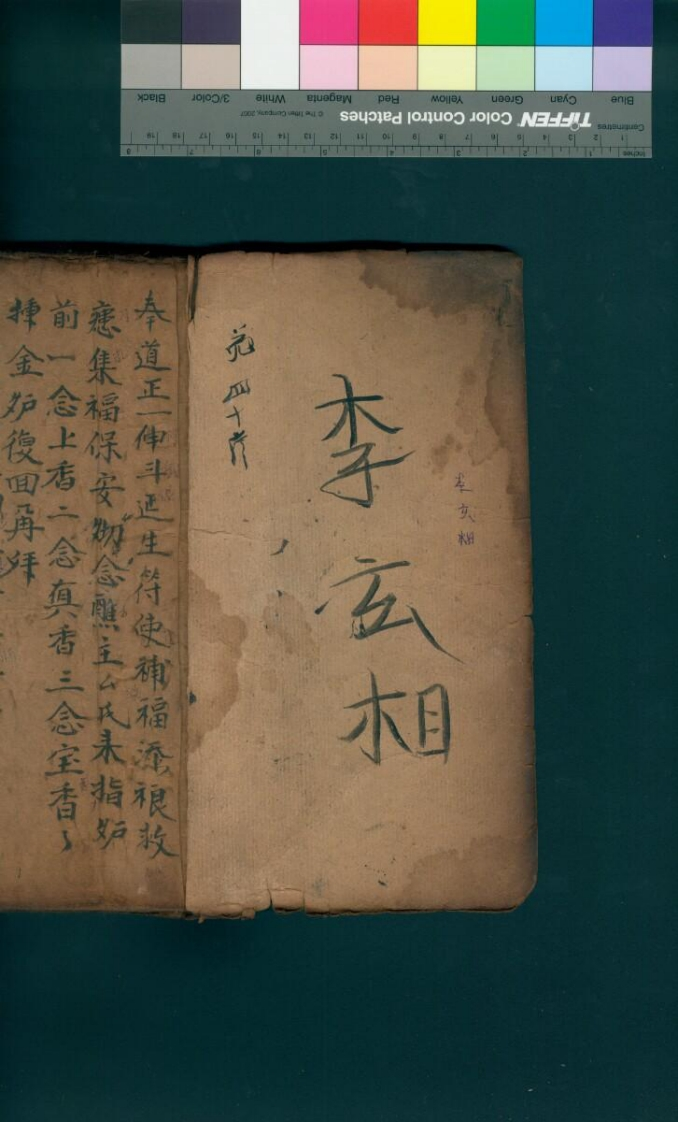 Blue
Cyan
Green
Yellow
Red
Magenta
White
3/Color
Black
TIFFEN Color Control Patches
© The Tiffen Company, 2007
Centimetres
Inches
李玄相
李玄相
四十
奉道正一伸斗延生符使補福添粮救
患集福保安初念醮主厶氏来指炉
前一念上香二念真香三念宝香
金炉復回再拜